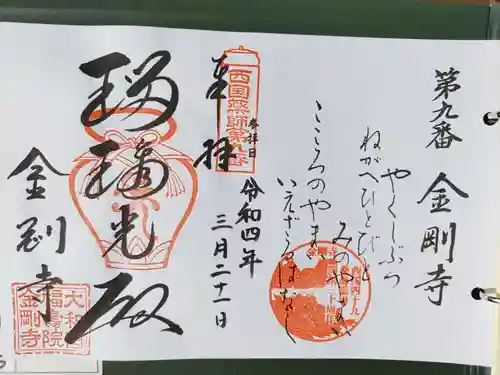 第九番 金剛寺
やくしぶつ
ねがへひとびと
みのやまい
こころのやまい
いえざるはなし
西国薬師第九番
奉拝
参拝日
令和四年
三月二十一日
瑠璃光殿
金剛寺
大和
金剛寺